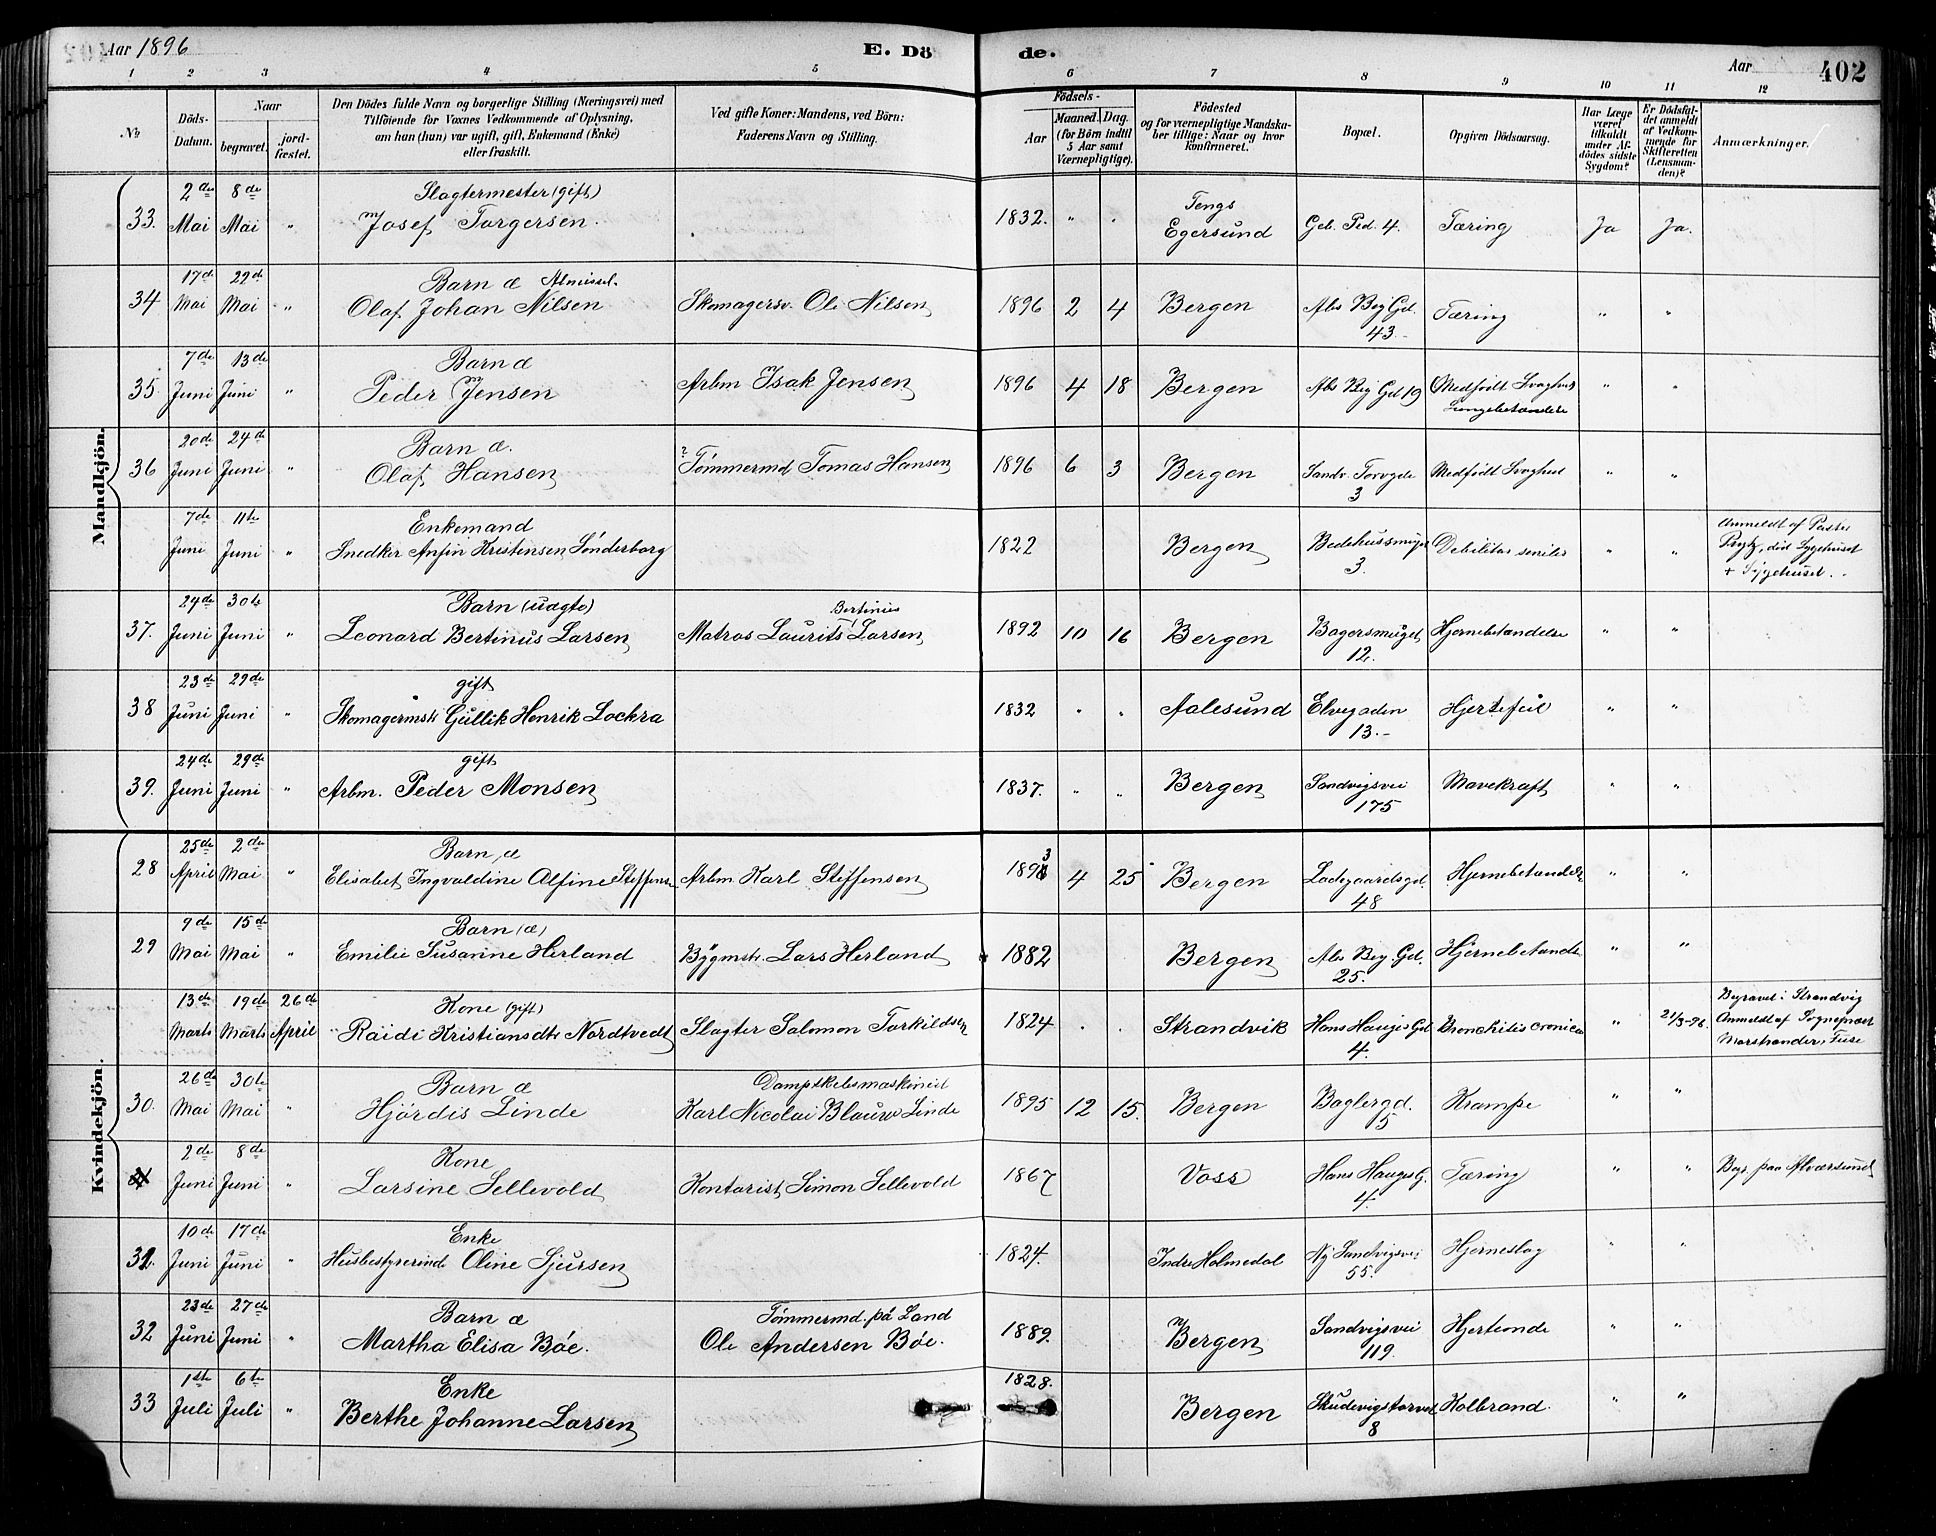 Aar 1896
E. Dö
de.
Aar
402
1 2 3 4 5 6 7 8 9 10 11 12
No
Döds-Datum.
Naar
begravet.
jordfæstet.
Den Dödes fulde Navn og borgerlige Stilling (Næringsvei) med
Tilföiende for Voxnes Vedkommende af Oplysning,
om han (hun) var ugift, gift, Enkemand (Enke)
eller fraskilt.
Ved gifte Koner: Mandens, ved Börn:
Faderens Navn og Stilling.
Födsels-
Aar
Maaned. Dag.
(for Börn indtil
5 Aar samt
Værnepligtige).
Födested
og for værnepligtige Mandska-
ber tillige: Naar og hvor
konfirmeret.
Bopæl.
Opgiven Dödsaarsag.
Har Læge
været
tilkaldt
under Af-
dödes sidste
Sygdom?
Er Dödsfal-
det anmeldt
af Vedkom-
mende for
Skifteretten
(Lensman-
den)?
Anmærkninger.
Mandkjön.
33. 2de Mai 8de Mai " Slagtermester (gift) Josef Torgersen. 1832. " " Tengs Egersund Geb. Ped. 4. Tæring Ja Ja.
34 17de Mai 22de Mai " Barn æ Olaf Johan Nilsen Skomagersv. Ole Nilsen 1896 2 4 Bergen Abs Bey Gd. 43. Tæring " "
35 7de Juni 13de Juni " Barn æ Peder Jensen Arbm Isak Jensen 1896 4 18 Bergen Abs Bey Gd 19 Medfödt Svaghed Lungebetændelse " "
36 20de Juni 24de Juni " Barn æ. Olaf Hansen Tømmermd Tomas Hansen 1896 6 3 Bergen Sandv. Torvgde 3 Medfödt Svaghed " "
7de Juni 11te Juni " Enkemand Snedker Anfin Kristensen Sønderborg 1822 Bergen Bedehussmuget 3. Debilitas senilis " " Anmeldt af Sygehuset + Sygehuset.
37. 24de Juni 30te Juni " Barn (uægte) Leonard Bertinus Larsen Matros Laurits Bertinius Larsen 1892 10 16 Bergen Bagersmuget 12. Hjernebetændelse " "
38 23de Juni 29de Juni " gift Skomagermstr Gullik Henrik Lockra 1832 " " Aalesund Elvegaden 13.- Hjertefeil " "
39. 24de Juni 29de Juni " gift Arbm. Peder Monsen 1837. " " Bergen Sandvigsvei 175 Mavekræft " "
Kvindekjön.
28 25de April 2de Mai " Barn æ Elisabet Ingvaldine Alfine Steffens. Arbm Karl Steffensen 1893 4 25 Bergen Ladegaardsgd. 48 Hjernebetændelse " "
29 9de Mai 15de Mai " Barn (æ) Emilie Susanne Herland Bygmstr. Lars Herland 1882 Bergen Abs Bey. Gd. 25. Hjernebetænde " "
13de Marts 19de Marts 26de April Kone (gift) Raidi Kristiansdtr Nordtvedt Slagter Salomon Torkildsen 1824 . . Strandvik Hans Hauges Gd 4. Bronchitis cronica " 21/3-96. Begravet i Strandvig Anmeldt af Sognepræst Marstrander, Fuse
30. 26de Mai 30te Mai " Barn æ Hjördis Linde Dampskibsmaskinist Karl Nicolai Blauw Linde 1895 12 15. Bergen Baglergd. 5 Krampe " "
2de Juni 8de Juni " Kone Larsine Sellevold Kontorist Simon Sellevold 1867 Voss Hans Hauges G. 4. Tæring " " Begr. paa Alversund
31. 10de Juni 17de Juni " Enke Husbestyrerinde Oline Sjursen 1824. Indre Holmedal Ny Sandvigsvei 55. Hjerneslag " "
32 23de Juni 27de Juni " Barn æ Martha Elisa Bøe. Tømmermd. på Land Ole Andersen Bøe. 1889. Bergen Sandvigsvei 119. Hjerteonde " "
33 1ste Juli 6te Juli " Enke Berthe Johanne Larsen 1828. Bergen Skudevigstorvet 8 Kolbrand. " "